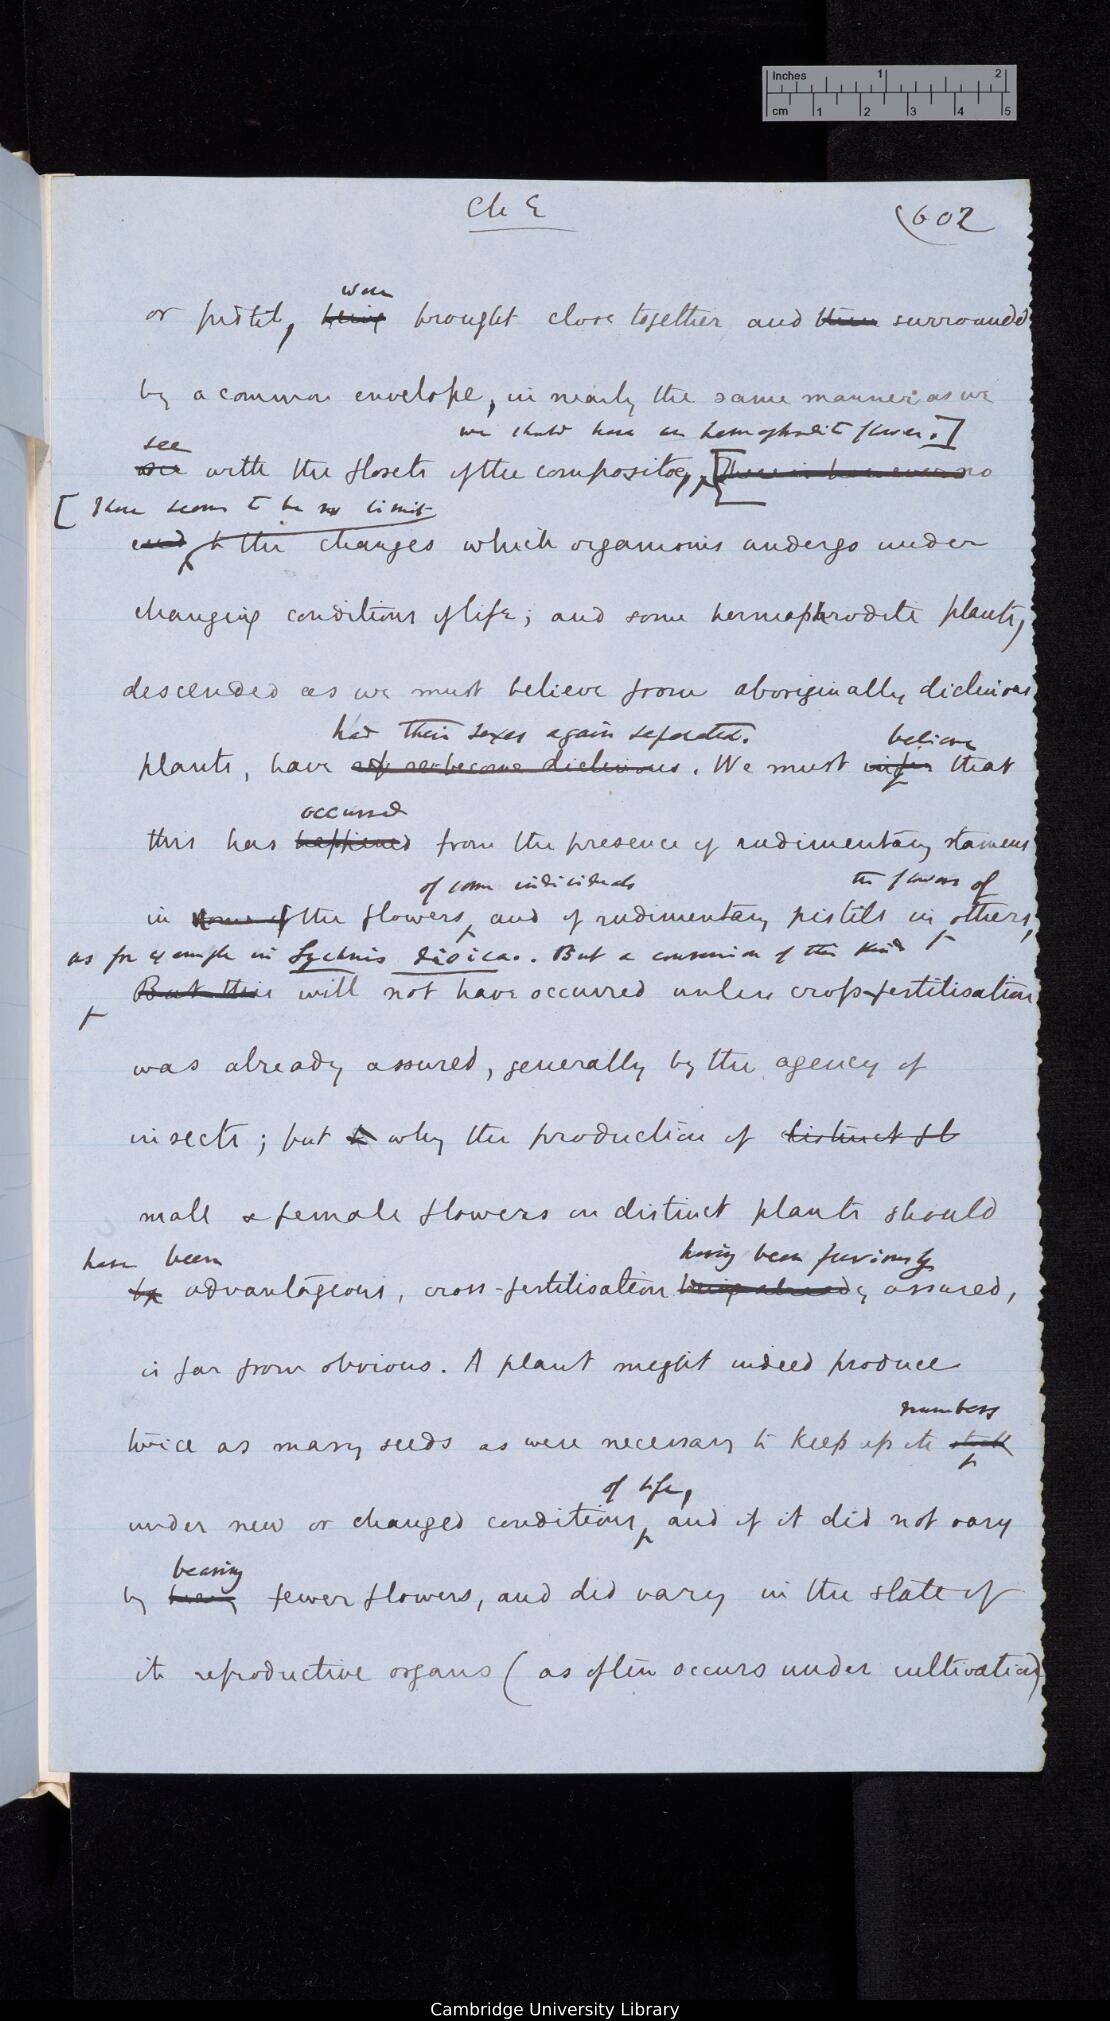 Inches 1 2
cm 1 2 3 4 5
Ch E
(602
were
or pistil, being brought close together and then surrounded
by a common envelope, in nearly the same manner as we
we should have an hermaphrodite flower.]
see
with the florets of the compositæ, [there is no
[There seems to be no limit
end to the changes which organisms undergo under
changing conditions of life; and some hermaphrodite plants,
descended as we must believe from aboriginally diclinous
had their sexes again separated. believe
plants, have become diclinous. We must infer that
occurred
this has happened from the presence of rudimentary stamens
of some individuals the flowers of
in some of the flowers, and of rudimentary pistils in others,
as for example in Lychnis dioica. But a conversion of this kind
But this will not have occurred unless cross-fertilisation
was already assured, generally by the agency of
insects; but why the production of distinct fl
male & female flowers on distinct plants should
have been having been previously
be advantageous, cross-fertilisation being already assured,
is far from obvious. A plant might indeed produce
numbers
twice as many seeds as were necessary to keep up its stock
of life,
under new or changed conditions, and if it did not vary
bearing
by fewer flowers, and did vary in the state of
its reproductive organs (as often occurs under cultivation)
Cambridge University Library